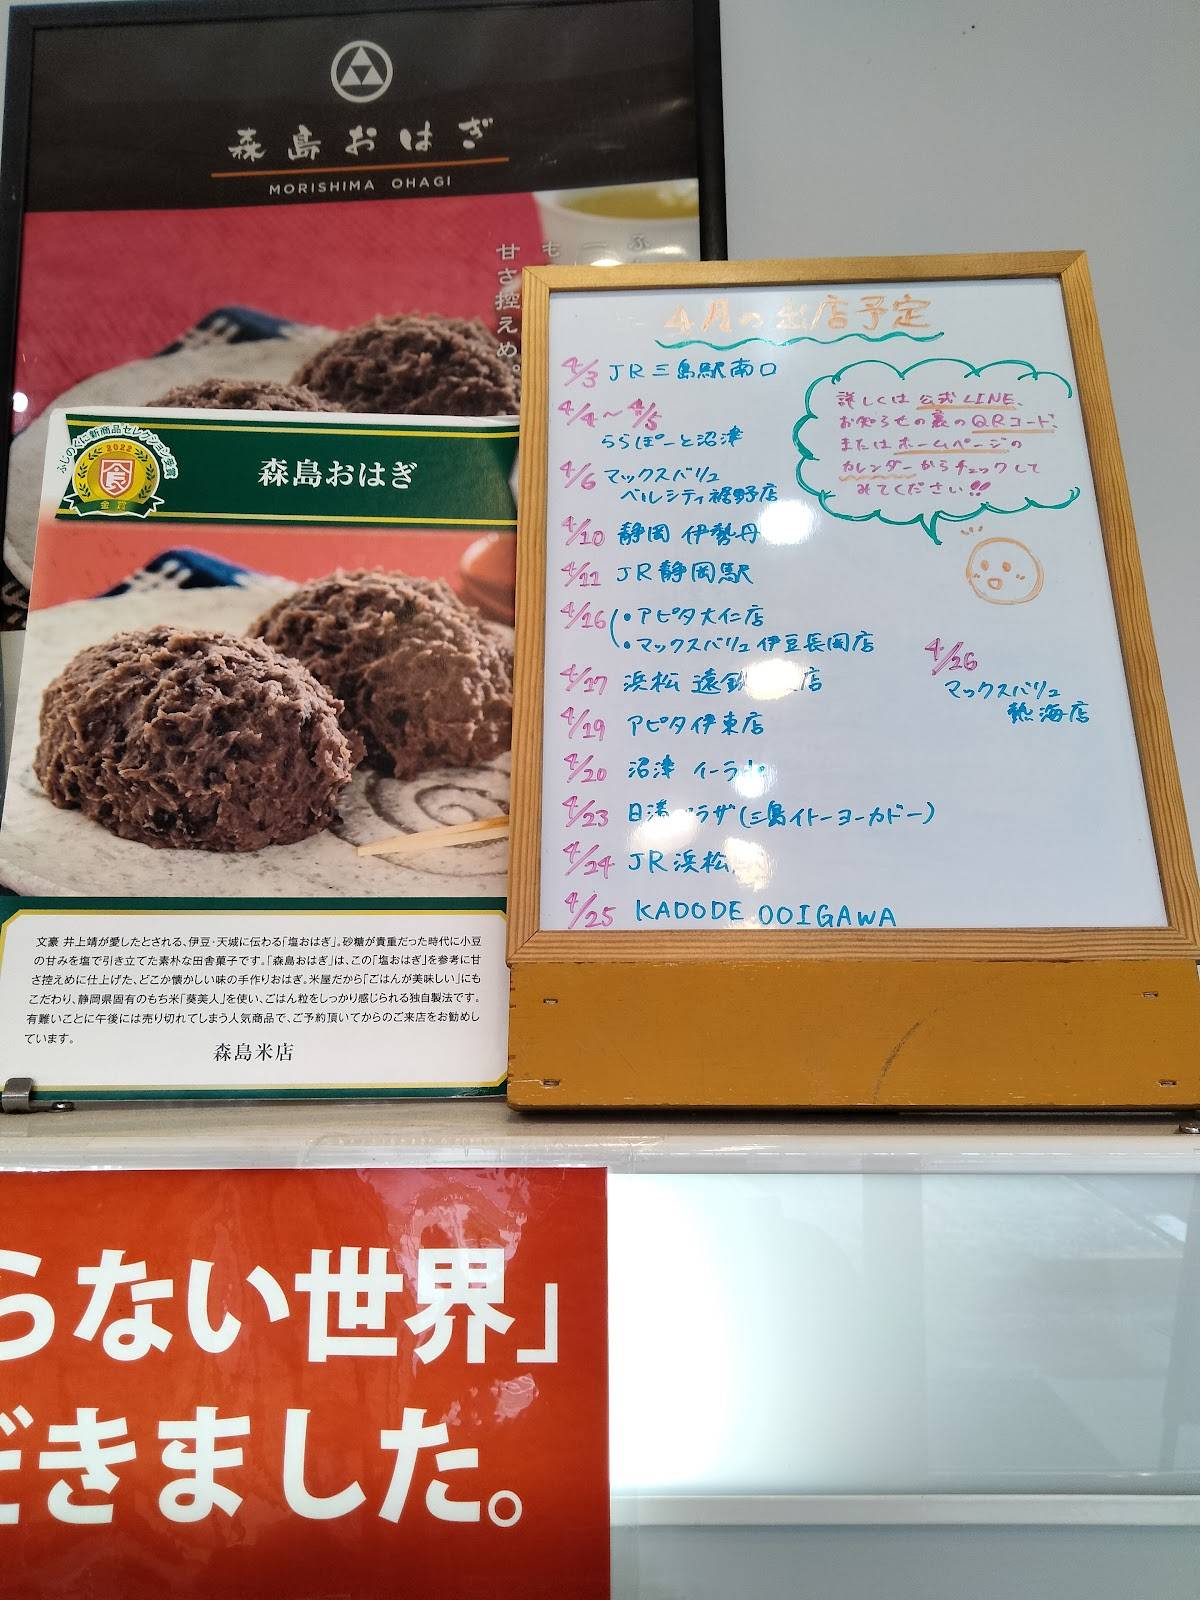 森島おはぎ
MORISHIMA OHAGI
甘さ控えめ。
も
ふじのくに新商品セレクション受賞
2022
金賞
森島おはぎ
文豪 井上靖が愛したとされる、伊豆・天城に伝わる「塩おはぎ」。砂糖が貴重だった時代に小豆
の甘みを塩で引き立てた素朴な田舎菓子です。「森島おはぎ」は、この「塩おはぎ」を参考に甘
さ控えめに仕上げた、どこか懐かしい味の手作りおはぎ。米屋だから「ごはんが美味しい」にも
こだわり、静岡県固有のもち米「葵美人」を使い、ごはん粒をしっかり感じられる独自製法です。
有難いことに午後には売り切れてしまう人気商品で、ご予約頂いてからのご来店をお勧めし
ています。
森島米店
4月の出店予定
4/3 JR三島駅南口
4/4～4/5
ららぽーと沼津
4/6 マックスバリュ
ベルシティ裾野店
4/10 静岡 伊勢丹
4/11 JR静岡駅
4/16 ・アピタ大仁店
・マックスバリュ伊豆長岡店
4/17 浜松 遠鉄 店
4/19 アピタ伊東店
4/20 沼津 イーラ
4/23 日清プラザ(三島イトーヨーカドー)
4/24 JR浜松
4/25 KADODE OOIGAWA
4/26
マックスバリュ
熱海店
詳しくは 公式LINE、
お知らせの裏のQRコード、
またはホームページの
カレンダーからチェックして
みてください!!
らない世界」
だきました。